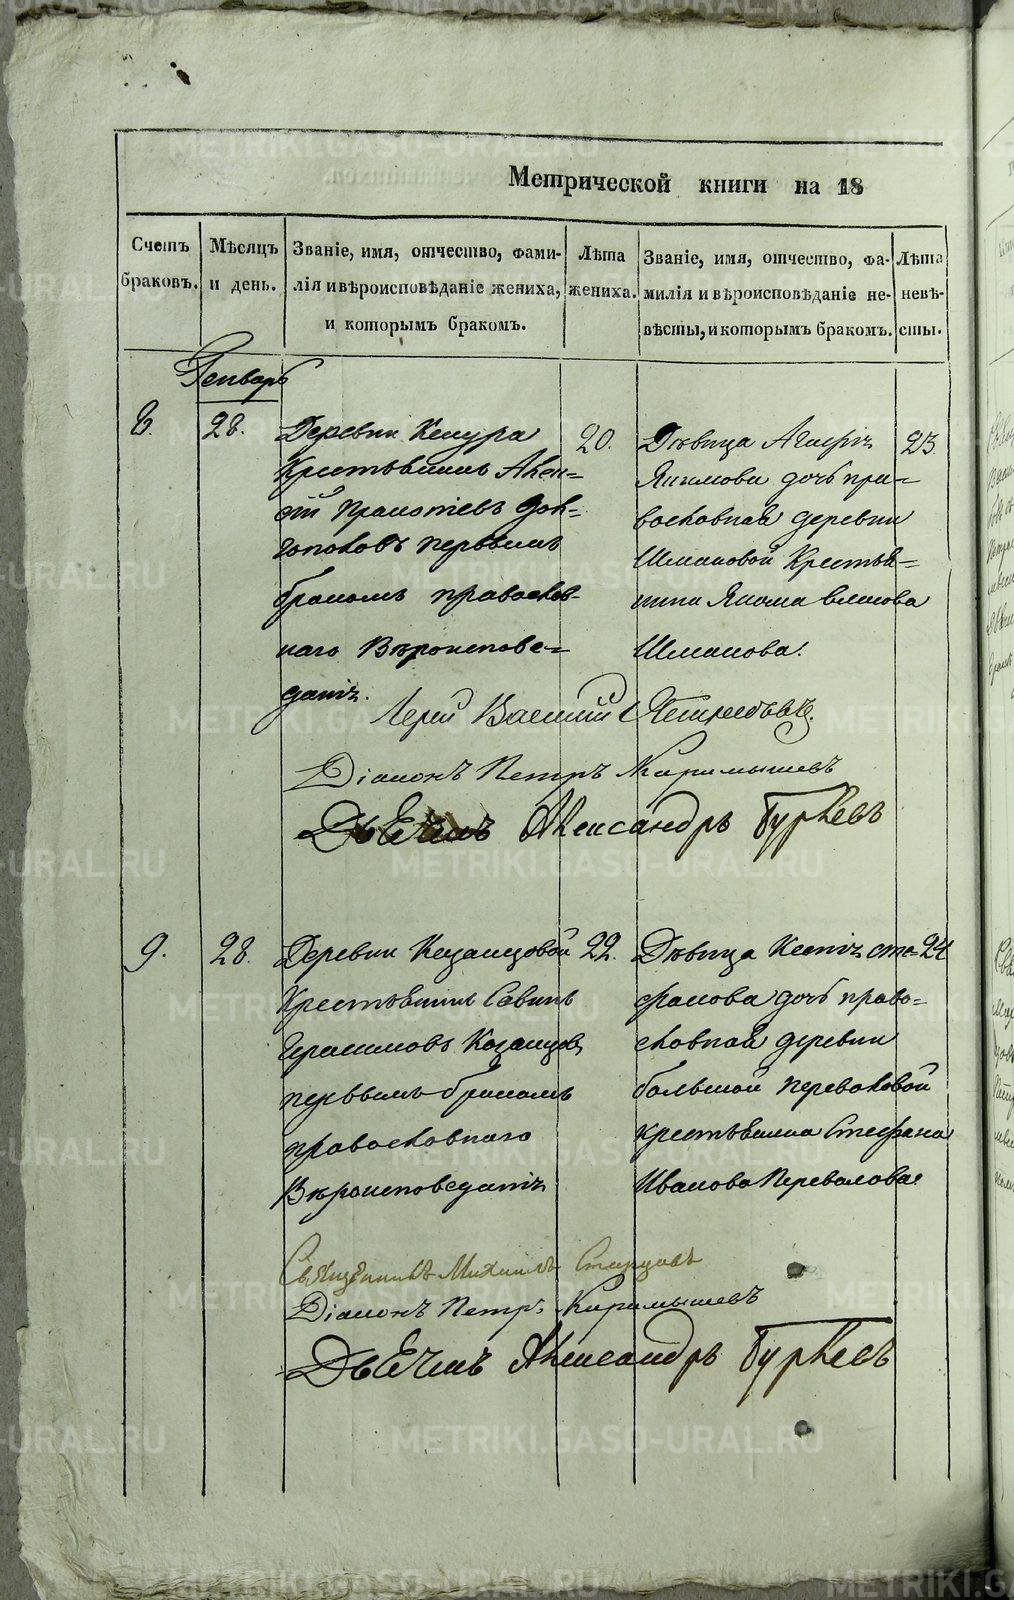 METRIKI.GASO-URAL.RU
Метрической книги на 18
Счетъ браковъ.
Мѣсяцъ и день.
Званіе, имя, отчество, фами-
лія и вѣроисповѣданіе жениха,
и которымъ бракомъ.
Лѣта жениха.
Званіе, имя, отчество, фа-
милія и вѣроисповѣданіе не-
вѣсты, и которымъ бракомъ.
Лѣта невѣ-
сты.
Генварь
8. 28.
Деревни
Крестьянинъ
первымъ
бракомъ православ-
наго Вѣроиспове-
данія.
20.
Дѣвица
Якимова дочь пра-
вославная деревни
Шмаковой Крестья-
нина Якима Власова
Шмакова.
23.
Іерей Василий
Діаконъ Петръ Карамышевъ
Дьячекъ Александръ Гурьевъ
9. 28.
Деревни Казанцовой
Крестьянинъ Савинъ
Герасимовъ Казанцов
первымъ бракомъ
православнаго
Вѣроисповеданія
22.
Дѣвица Ксенія Сте-
фанова дочь право-
славная деревни
большой Переваловой
крестьянина Стефана
Иванова Перевалова.
24
Священникъ Михаилъ Старцовъ
Діаконъ Петръ Карамышевъ
Дьячекъ Александръ Гурьевъ